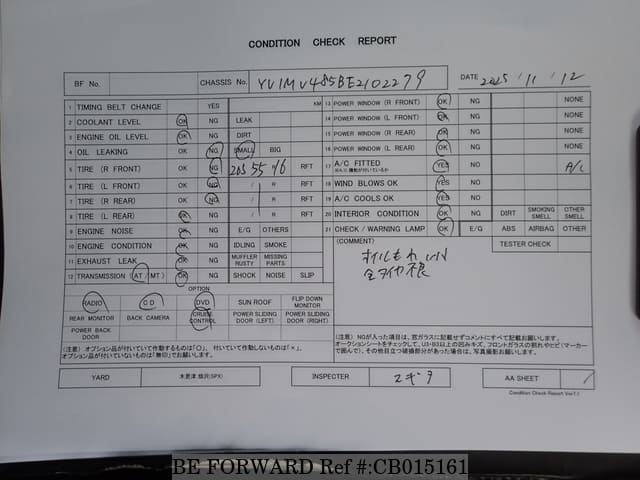 CONDITION CHECK REPORT
BF No. CHASSIS No. YV1MV485BE2102279 DATE 2025 / 11 / 12
1 TIMING BELT CHANGE YES KM 13 POWER WINDOW (R FRONT) OK NG NONE
2 COOLANT LEVEL OK NG LEAK 14 POWER WINDOW (L FRONT) OK NG NONE
3 ENGINE OIL LEVEL OK NG DIRT 15 POWER WINDOW (R REAR) OK NG NONE
4 OIL LEAKING OK NG SMALL BIG 16 POWER WINDOW (L REAR) OK NG NONE
5 TIRE (R FRONT) OK NG 205 55 16 RFT 17 A/C FITTED YES NO A/C
6 TIRE (L FRONT) OK NG / R RFT 18 WIND BLOWS OK YES NO
7 TIRE (R REAR) OK NG / R RFT 19 A/C COOLS OK YES NO
8 TIRE (L REAR) OK NG / R RFT 20 INTERIOR CONDITION OK NG DIRT SMOKING SMELL OTHER SMELL
9 ENGINE NOISE OK NG E/G OTHERS 21 CHECK / WARNING LAMP OK E/G ABS AIRBAG OTHER
10 ENGINE CONDITION OK NG IDLING SMOKE (COMMENT) TESTER CHECK
11 EXHAUST LEAK OK NG MUFFLER RUSTY MISSING PARTS
12 TRANSMISSION (AT / MT) OK NG SHOCK NOISE SLIP
オイルもれ
OPTION
RADIO CD DVD SUN ROOF FLIP DOWN MONITOR
REAR MONITOR BACK CAMERA CRUISE CONTROL POWER SLIDING DOOR (LEFT) POWER SLIDING DOOR (RIGHT)
POWER BACK DOOR
(注意) オプション品が付いていて作動するものは「○」、付いていて作動しないものは「×」、
オプション品が付いていないものは「無印」でお願いします。
(注意) NGが入った項目は、窓ガラスに記載せずコメントにすべて記載お願いします。
オークションシートをチェックして、U3・B3以上の凹みキズ、フロントガラスの割れやヒビ(マーカー
で囲んで)、その他目立つ破損部分があった場合は、写真撮影お願いします。
YARD 木更津 INSPECTER AA SHEET
Condition Check Report Ver7.1
BE FORWARD Ref #:CB015161